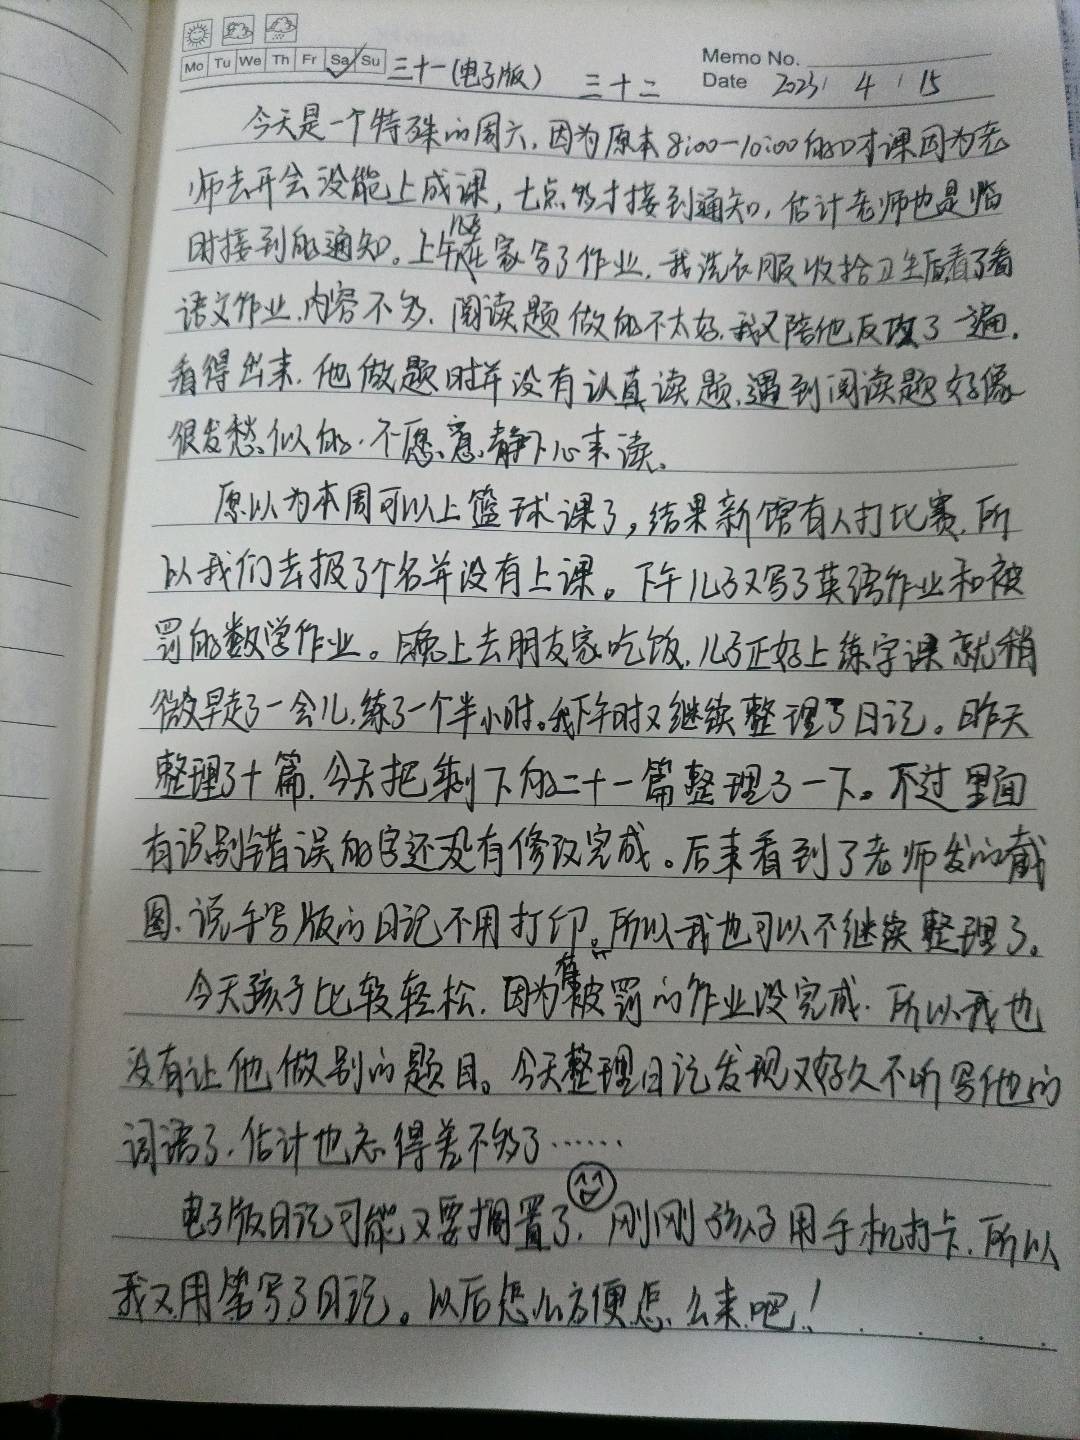 Mo Tu We Th Fr Sa Su 三十一(电子版) 三十二
Memo No.
Date 2023 / 4 / 15
今天是一个特殊的周六,因为原本8:00-10:00的口才课因为老
师去开会没能上成课,七点多才接到通知,估计老师也是临
时接到的通知。上午在家写了作业,我洗衣服收拾卫生后看了看
语文作业,内容不多,阅读题做的不太好,我又陪他反攻了一遍,
看得出来,他做题时并没有认真读题,遇到阅读题好像
很发愁似的,不愿意静下心来读。
原以为本周可以上篮球课了,结果新馆有人打比赛,所
以我们去报了个名并没有上课。下午儿子又写了英语作业和被
罚的数学作业。晚上去朋友家吃饭,儿子正好上练字课就稍
微早走了一会儿,练了一个半小时。我下午时又继续整理了日记。昨天
整理了十篇,今天把剩下的二十一篇整理了一下。不过里面
有识别错误的字还没有修改完成。后来看到了老师发的截
图,说手写版的日记不用打印。所以我也可以不继续整理了。
今天孩子比较轻松,因为有被罚的作业没完成,所以我也
没有让他做别的题目。今天整理日记发现又好久不听写他的
词语了,估计也忘得差不多了……
电子版日记可能又要搁置了,刚刚孩子用手机打卡,所以
我又用笔写了日记。以后怎么方便怎么来吧!